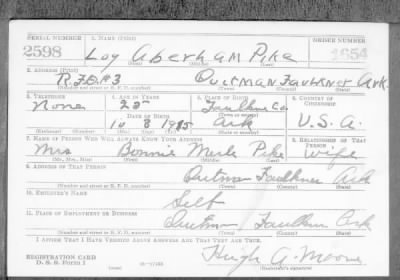 SERIAL NUMBER 1. NAME (Print) ORDER NUMBER
2598 Loy Aberham Pike 1654
2. ADDRESS (Print)
R.F.D. #3 Quitman Faulkner Ark.
(Number and street or R. F. D. number) (Town) (County) (State)
3. TELEPHONE 4. AGE IN YEARS 5. PLACE OF BIRTH 6. COUNTRY OF CITIZENSHIP
None 25 Faulkner Co.
DATE OF BIRTH
10 1915 Ark U.S.A.
(Exchange) (Number) (Mo.) (Day) (Yr.) (State or country)
7. NAME OF PERSON WHO WILL ALWAYS KNOW YOUR ADDRESS 8. RELATIONSHIP OF THAT PERSON
Mrs Bonnie Merle Pike Wife
(Mr., Mrs., Miss) (First) (Middle) (Last)
9. ADDRESS OF THAT PERSON
Quitman Faulkner Ark
(Number and street or R. F. D. number) (Town) (County) (State)
10. EMPLOYER'S NAME
Self
11. PLACE OF EMPLOYMENT OR BUSINESS
Quitman Faulkner Ark
(Number and street or R. F. D. number) (Town) (County) (State)
I AFFIRM THAT I HAVE VERIFIED ABOVE ANSWERS AND THAT THEY ARE TRUE.
REGISTRATION CARD
D. S. S. Form 1 Hugh A. Moore
(Registrar's signature)